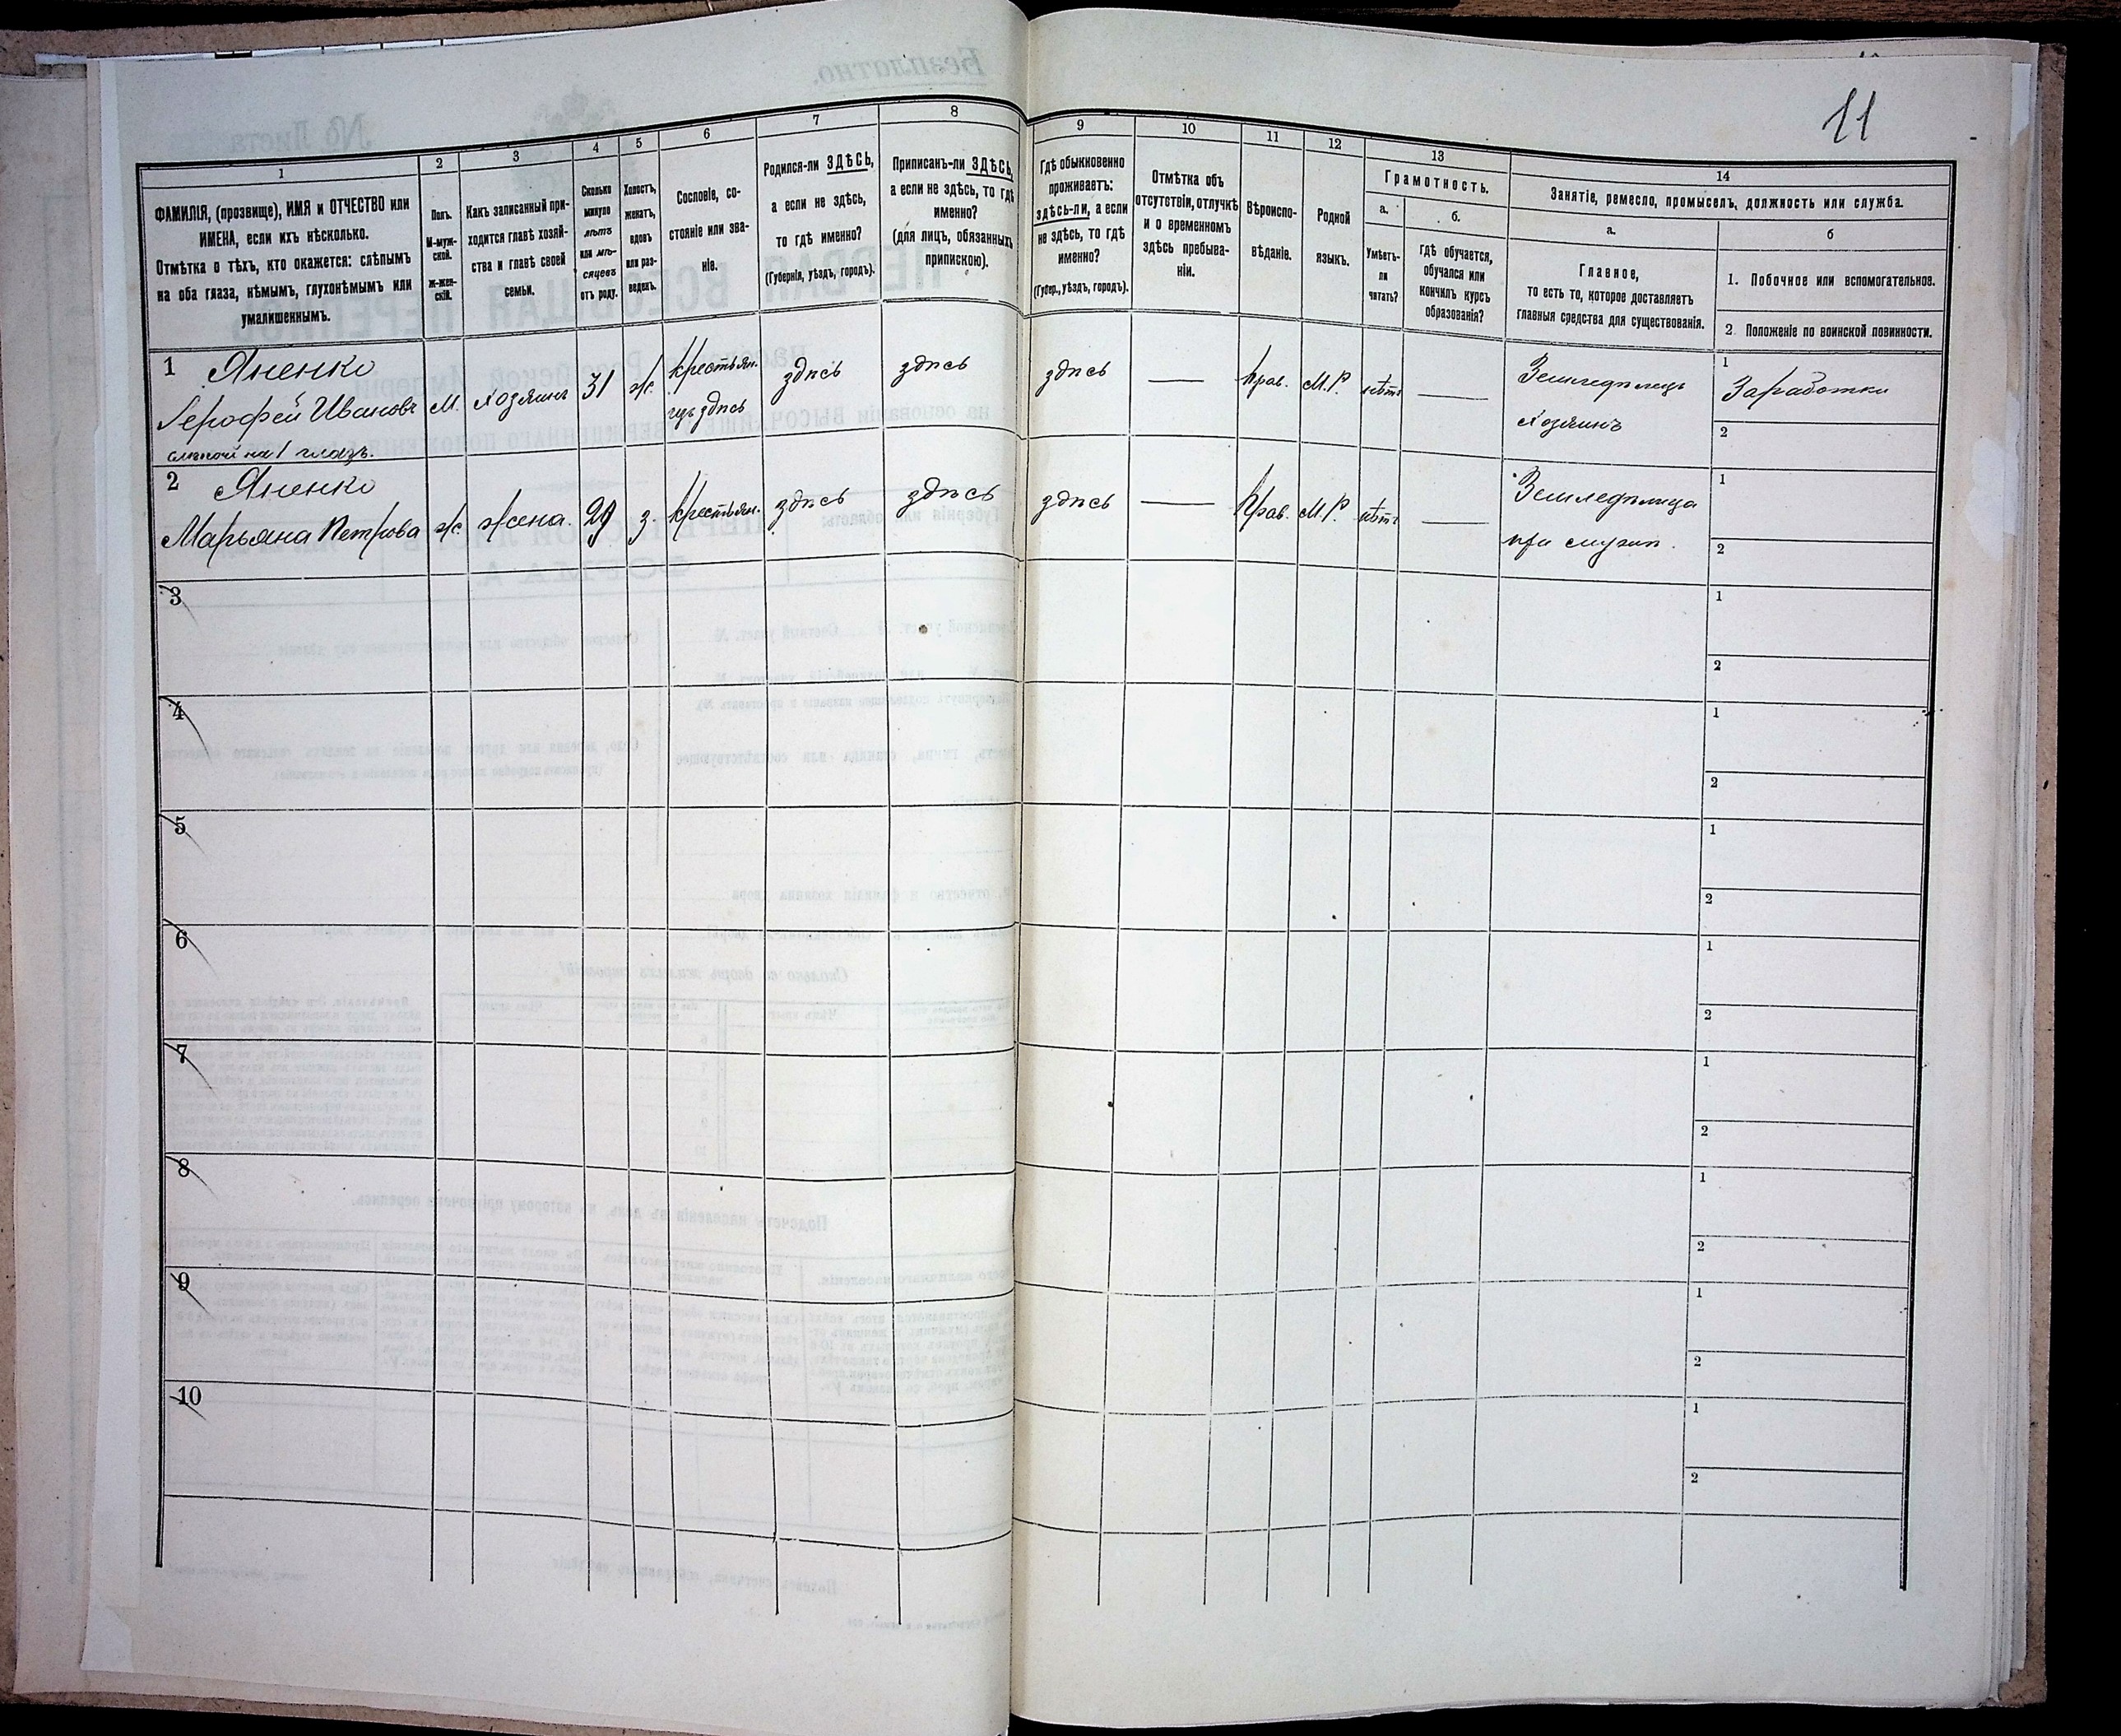 11
1
2
3
4
5
6
7
8
9
10
11
12
13
14
ФАМИЛІЯ, (прозвище), ИМЯ и ОТЧЕСТВО или
ИМЕНА, если ихъ нѣсколько.
Отмѣтка о тѣхъ, кто окажется: слѣпымъ
на оба глаза, нѣмымъ, глухонѣмымъ или
умалишеннымъ.
Полъ.
М-муж-
ской.
Ж-жен-
скій.
Какъ записанный при-
ходится главѣ хозяй-
ства и главѣ своей
семьи.
Сколько
минуло
лѣтъ
или мѣ-
сяцевъ
отъ роду.
Холостъ,
женатъ,
вдовъ
или раз-
веденъ.
Сословіе, со-
стояніе или зва-
ніе.
Родился-ли ЗДѢСЬ,
а если не здѣсь,
то гдѣ именно?
(Губернія, уѣздъ, городъ).
Приписанъ-ли ЗДѢСЬ,
а если не здѣсь, то гдѣ
именно?
(для лицъ, обязанныхъ
припискою).
Гдѣ обыкновенно
проживаетъ:
здѣсь-ли, а если
не здѣсь, то гдѣ
именно?
(Губер., уѣздъ, городъ).
Отмѣтка объ
отсутствіи, отлучкѣ
и о временномъ
здѣсь пребыва-
ніи.
Вѣроиспо-
вѣданіе.
Родной
языкъ.
Грамотность.
а.
Умѣетъ-
ли
читать?
б.
Гдѣ обучается,
обучался или
кончилъ курсъ
образованія?
Занятіе, ремесло, промыселъ, должность или служба.
а.
Главное,
то есть то, которое доставляетъ
главныя средства для существованія.
б
1. Побочное или вспомогательное.
2 Положеніе по воинской повинности.
1 Яненко
Герофей Ивановъ
слѣпой на 1 глазъ.
М.
хозяинъ
31
ж.
крестьян.
здѣсь
здѣсь
здѣсь
здѣсь
—
Прав.
М.Р.
нѣтъ
—
Земледѣлецъ
хозяинъ
1
Заработки
2
2 Яненко
Марьяна Петрова
ж.
жена.
29
з.
крестьян.
здѣсь
здѣсь
здѣсь
—
Прав.
М.Р.
нѣтъ
—
Земледѣлица
при
1
2
3
1
2
4
1
2
5
1
2
6
1
2
7
1
2
8
1
2
9
1
2
10
1
2